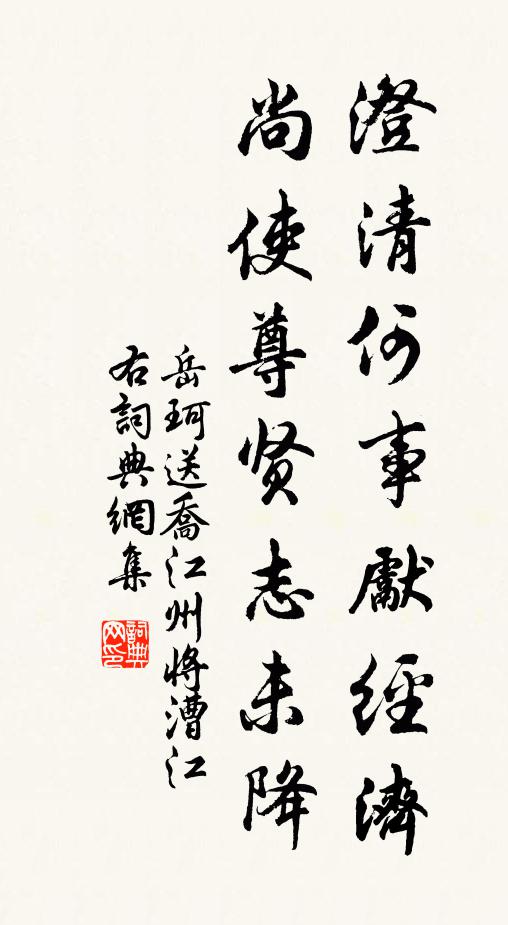 澄清何事獻經濟
尚使尊贤志未降
岳珂送喬江州將漕江
右詞典網集
詞典网印